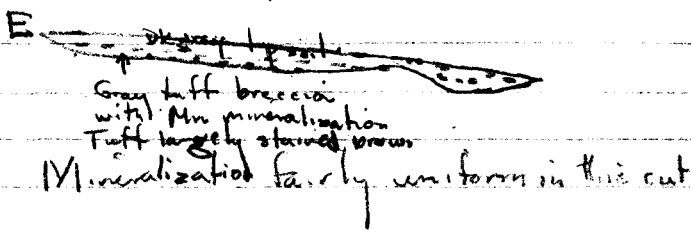 E
Gray tuff breccia
with Mn mineralization
Tuff largely stained brown
Mineralization fairly uniform in this cut